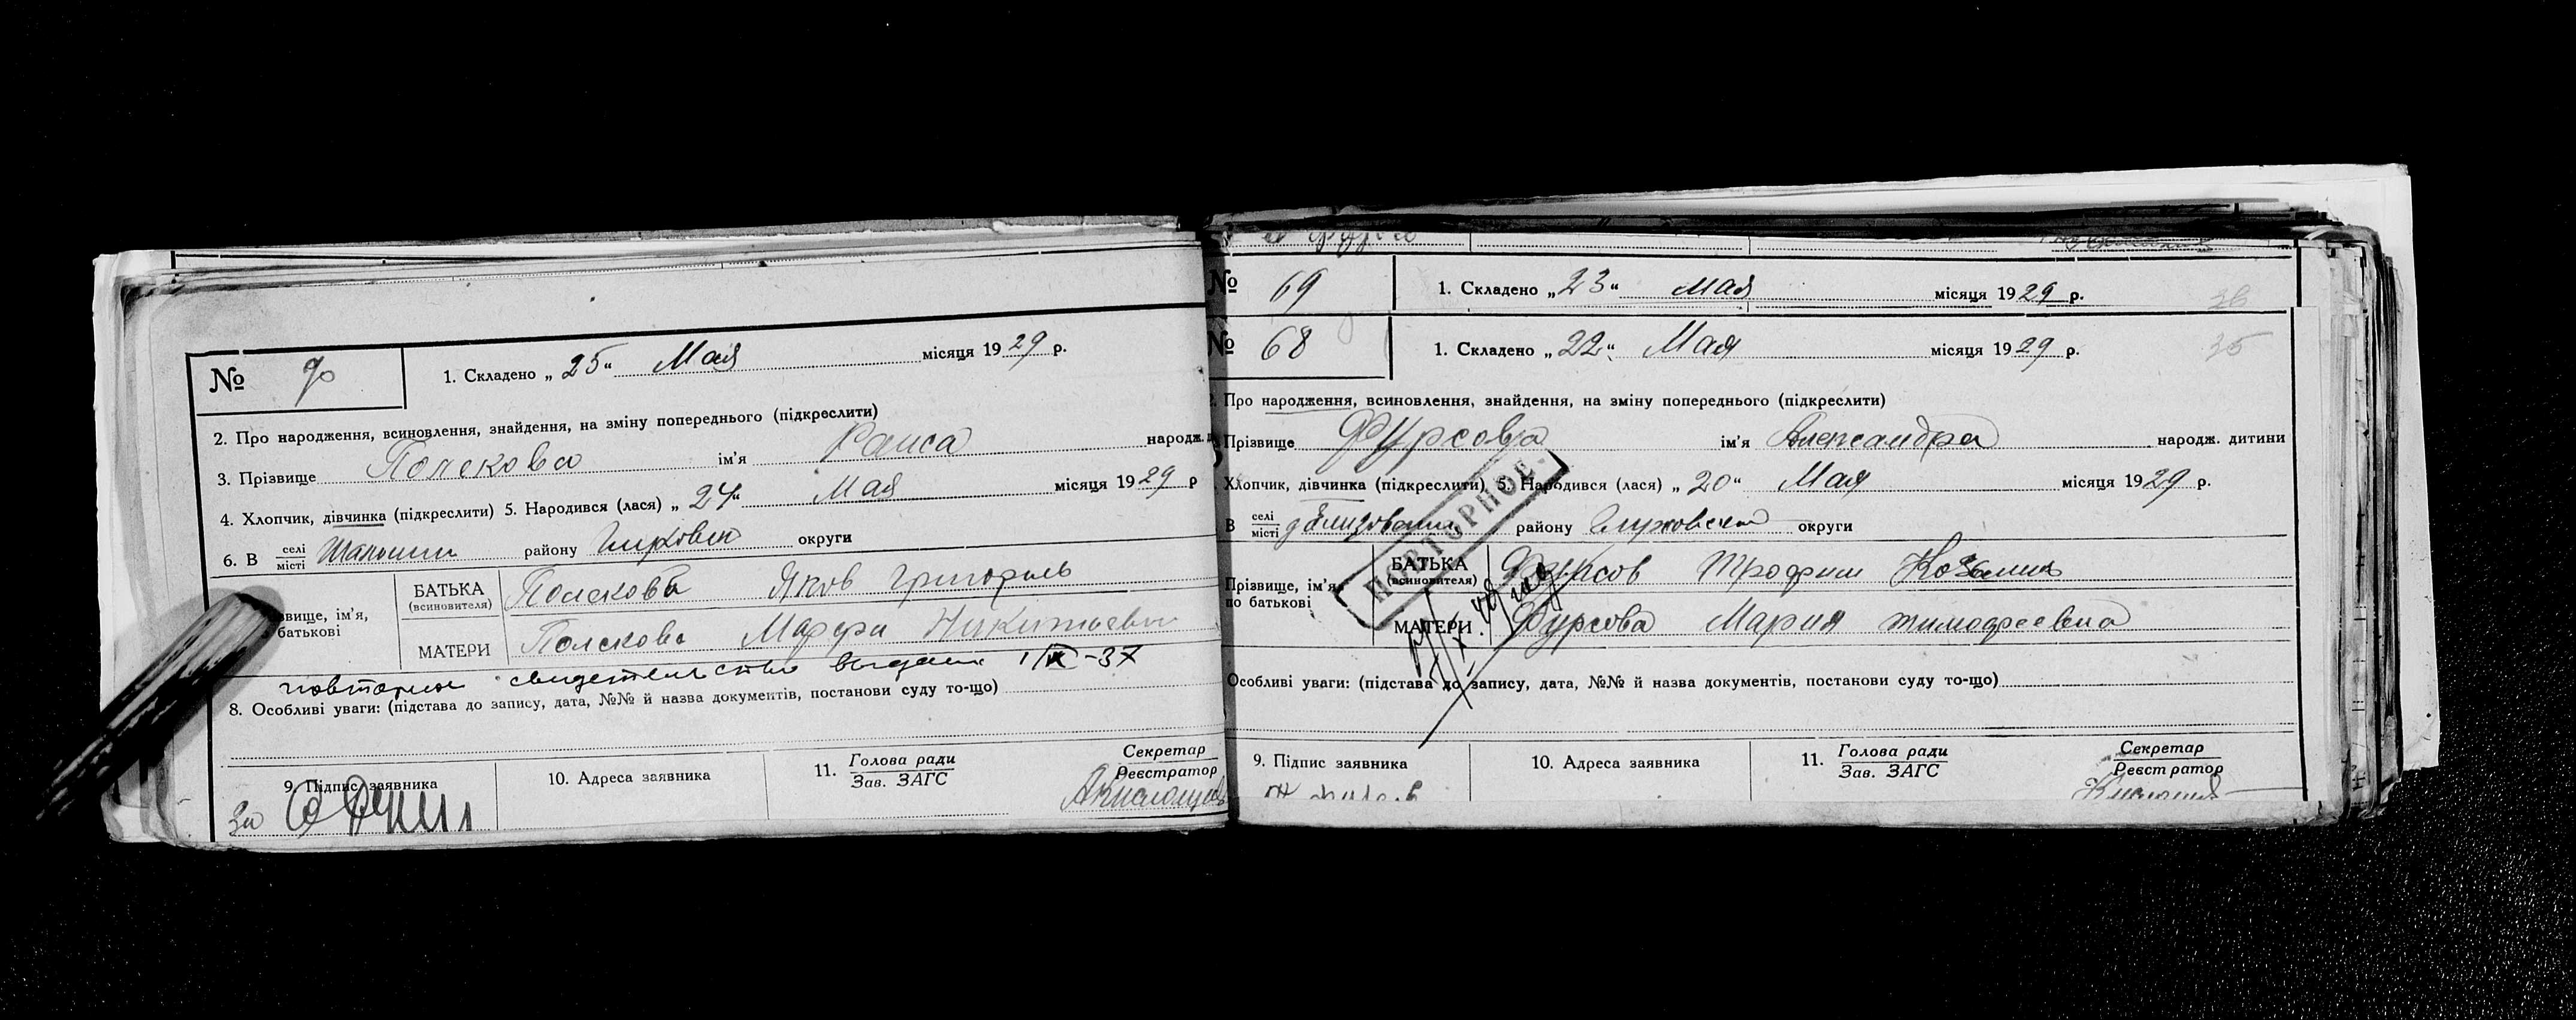 № 70 1. Складено „25“ Мая місяця 1929 р.
2. Про народження, всиновлення, знайдення, на зміну попереднього (підкреслити)
3. Прізвище Полскова ім'я Раиса народж.
4. Хлопчик, дівчинка (підкреслити) 5. Народився (лася) „24“ Мая місяця 1929 р
6. В селі місті району округи
звище, ім'я,
батькові
БАТЬКА
(всиновителя)
Полскова Яков Григорьев
МАТЕРИ Полскова Марфа Никитаевна
повторное свидетельство выдано 1/IX-37
8. Особливі уваги: (підстава до запису, дата, №№ й назва документів, постанови суду то-що)
9. Підпис заявника 10. Адреса заявника 11. Голова ради Зав. ЗАГС Секретар Реєстратор
За
№ 69 1. Складено „23“ мая місяця 1929 р.
№ 68 1. Складено „22“ Мая місяця 1929 р. 35
Про народження, всиновлення, знайдення, на зміну попереднього (підкреслити)
Прізвище Фурсова ім'я Александра народж. дитини
Хлопчик, дівчинка (підкреслити) 5. Народився (лася) „20“ Мая місяця 1929 р.
В селі місті району округи
ПОВТОРНОЕ
Прізвище, ім'я,
по батькові
БАТЬКА
(всиновителя)
Фурсов Трофим Козьмич
МАТЕРИ Фурсова Мария тимофеевна
Особливі уваги: (підстава до запису, дата, №№ й назва документів, постанови суду то-що)
9. Підпис заявника 10. Адреса заявника 11. Голова ради Зав. ЗАГС Секретар Реєстратор